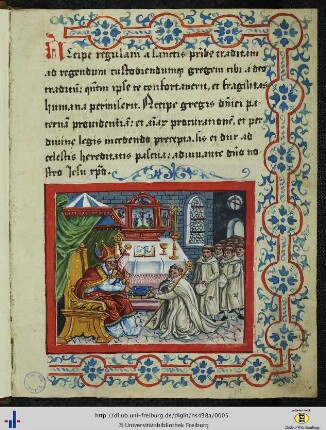 Accipe regulam a sanctis patribus traditam
ad regendum custodiendumque gregem tibi a deo
traditum: quantum ipse te confortaverit, et fragilitas
humana permiserit. Accipe gregis dominici pa
ternam providentiam: et animarum procurationem: et per
divine legis incedendo precepta: sis ei dux ad
celestis hereditatis pascua: adiuvante domino no
stro Jesu
http://dl.ub.uni-freiburg.de/diglit/hs438a/0005
© Universitätsbibliothek Freiburg